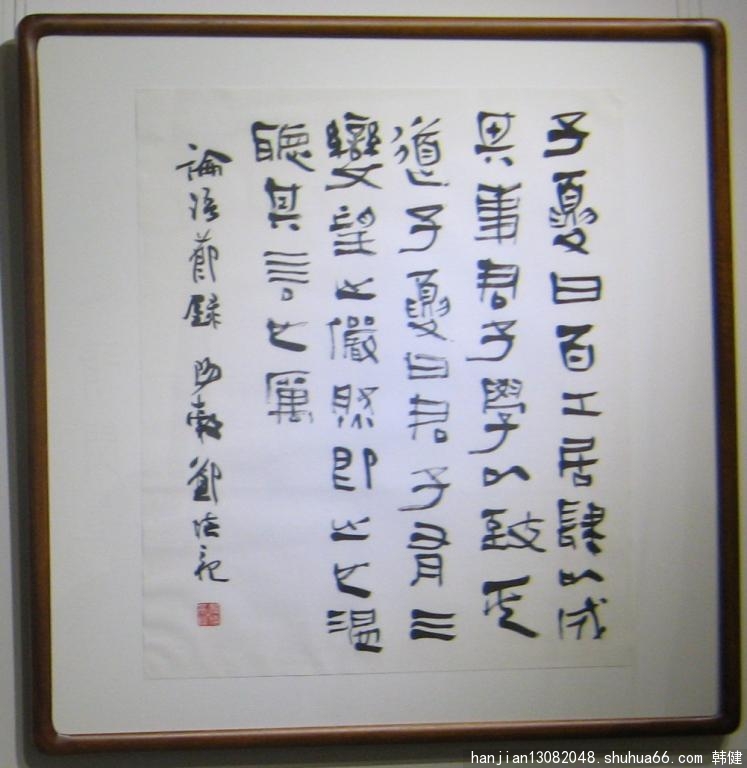 子夏曰百工居肆以成
其事君子學以致其
道子夏曰君子有三
變望之儼然即之也溫
聽其言也厲
論語節錄
hanjian13082048.shuhua66.com 韩健